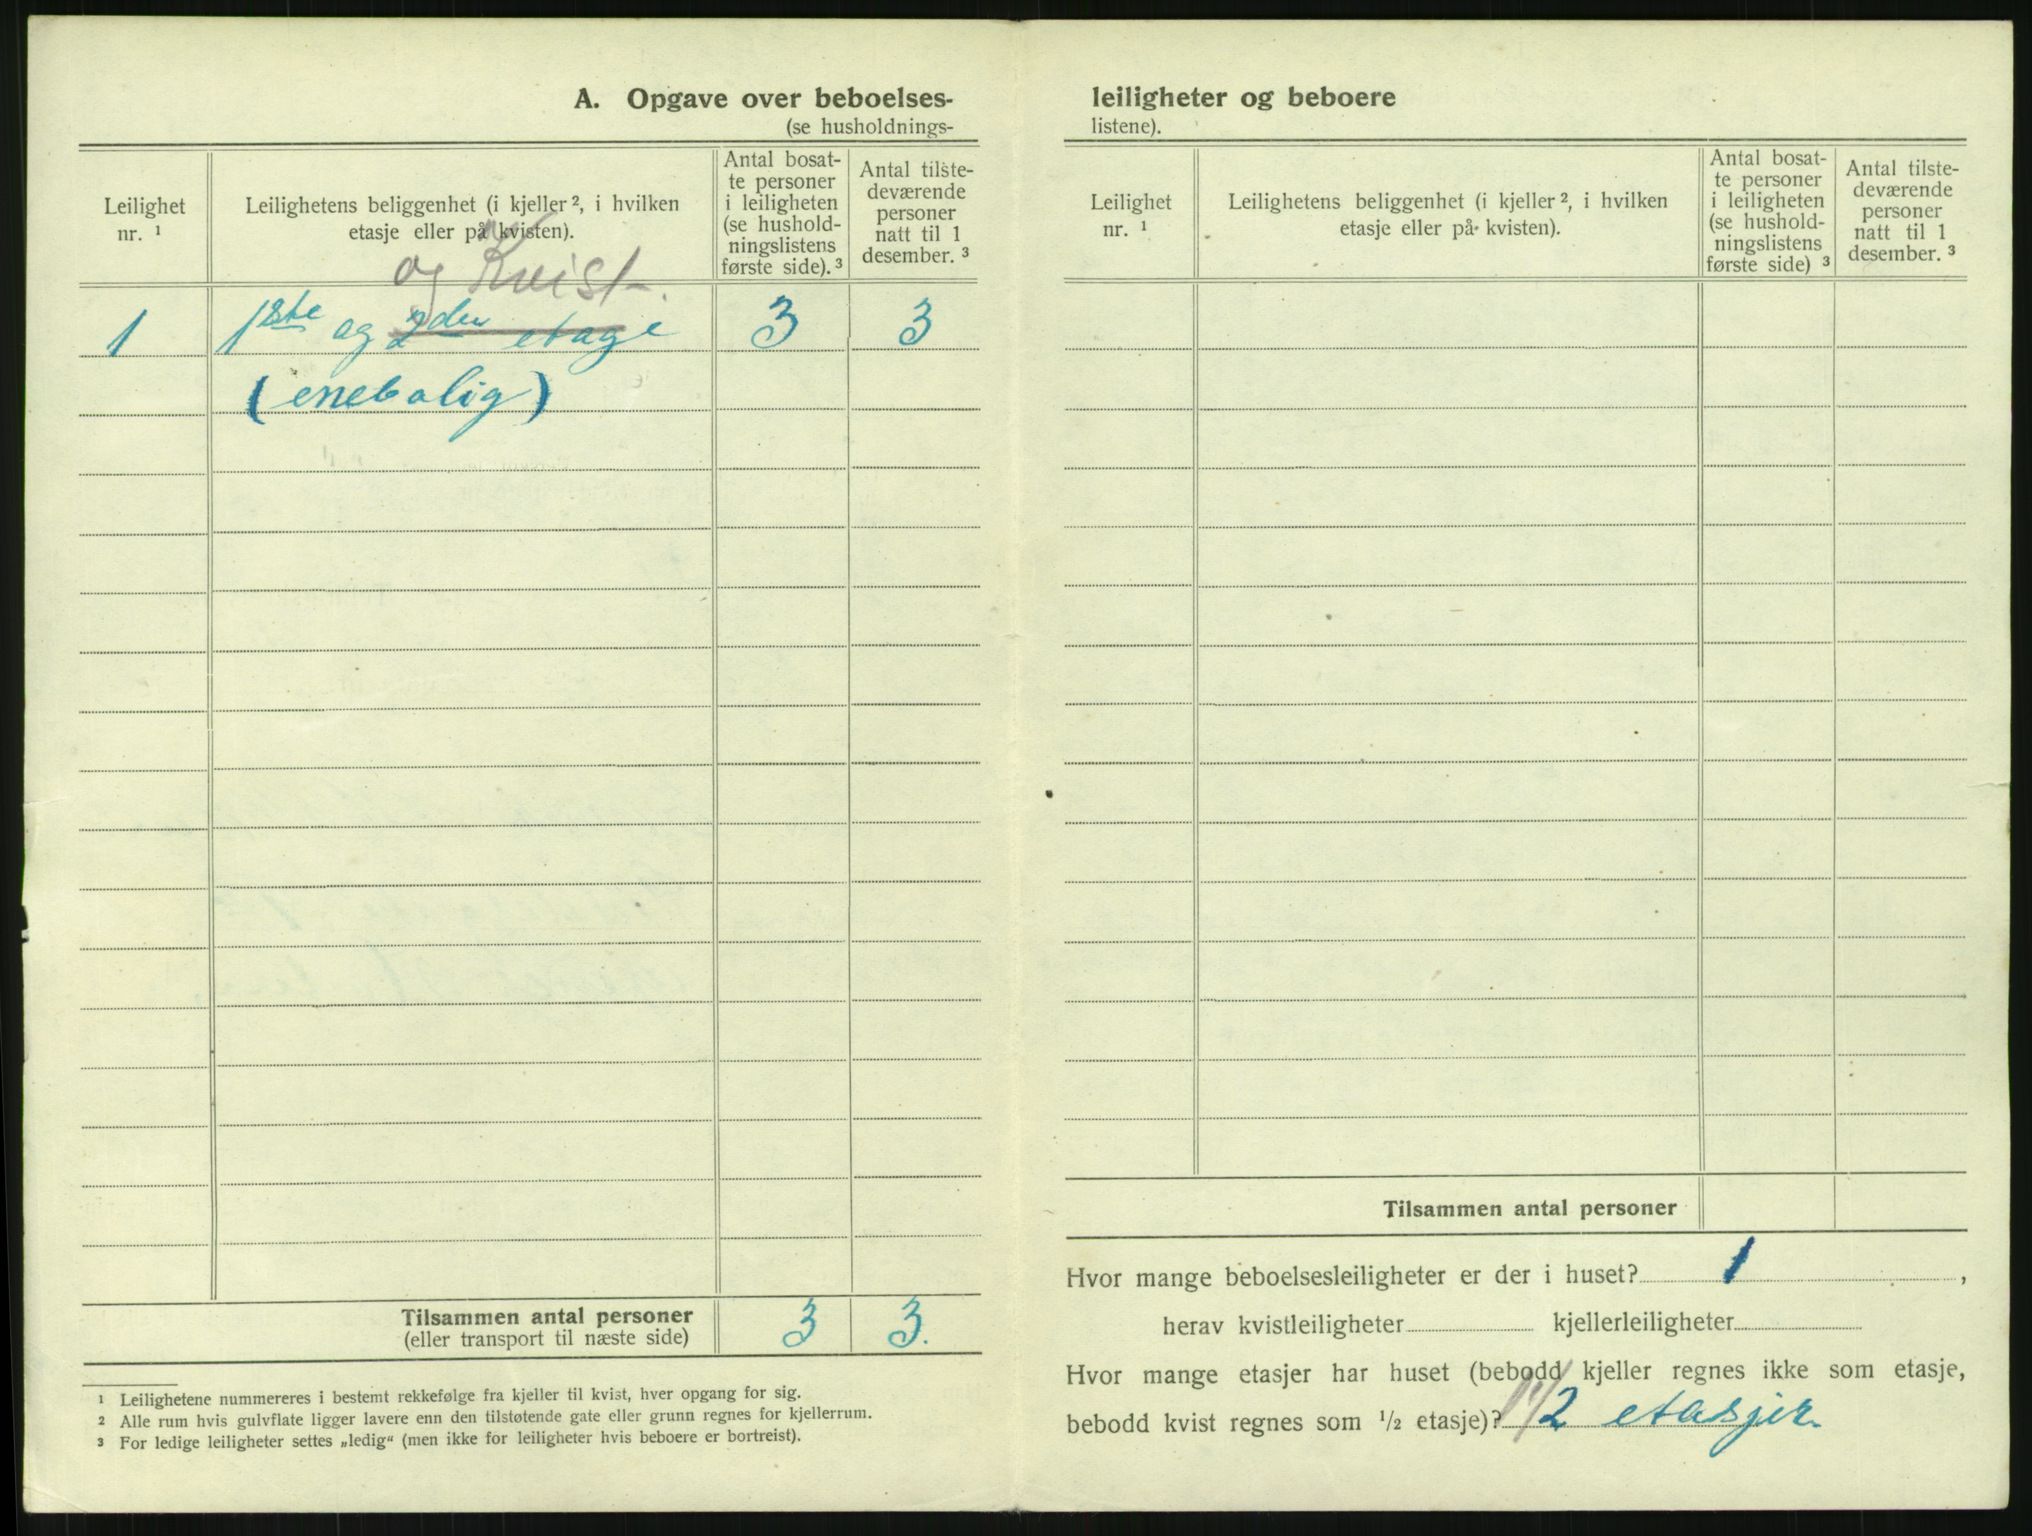 A. Opgave over beboelses-
(se husholdnings-
Leilighet
nr. 1
Leilighetens beliggenhet (i kjeller ², i hvilken
etasje eller på kvisten).
Antal bosat-
te personer
i leiligheten
(se hushold-
ningslistens
første side). ³
Antal tilste-
deværende
personer
natt til 1
desember. ³
og Kvist.
1 1ste og 2den etage 3 3
(enebolig)
Tilsammen antal personer 3 3.
(eller transport til næste side)
¹ Leilighetene nummereres i bestemt rekkefølge fra kjeller til kvist, hver opgang for sig.
² Alle rum hvis gulvflate ligger lavere enn den tilstøtende gate eller grunn regnes for kjellerrum.
³ For ledige leiligheter settes „ledig“ (men ikke for leiligheter hvis beboere er bortreist).
leiligheter og beboere
listene).
Leilighet
nr. ¹
Leilighetens beliggenhet (i kjeller ², i hvilken
etasje eller på kvisten).
Antal bosat-
te personer
i leiligheten
(se hushold-
ningslistens
første side) ³
Antal tilste-
deværende
personer
natt til 1
desember. ³
Tilsammen antal personer
Hvor mange beboelsesleiligheter er der i huset? 1,
herav kvistleiligheter kjellerleiligheter
Hvor mange etasjer har huset (bebodd kjeller regnes ikke som etasje,
bebodd kvist regnes som ½ etasje)? 1 1/2 etasjer.